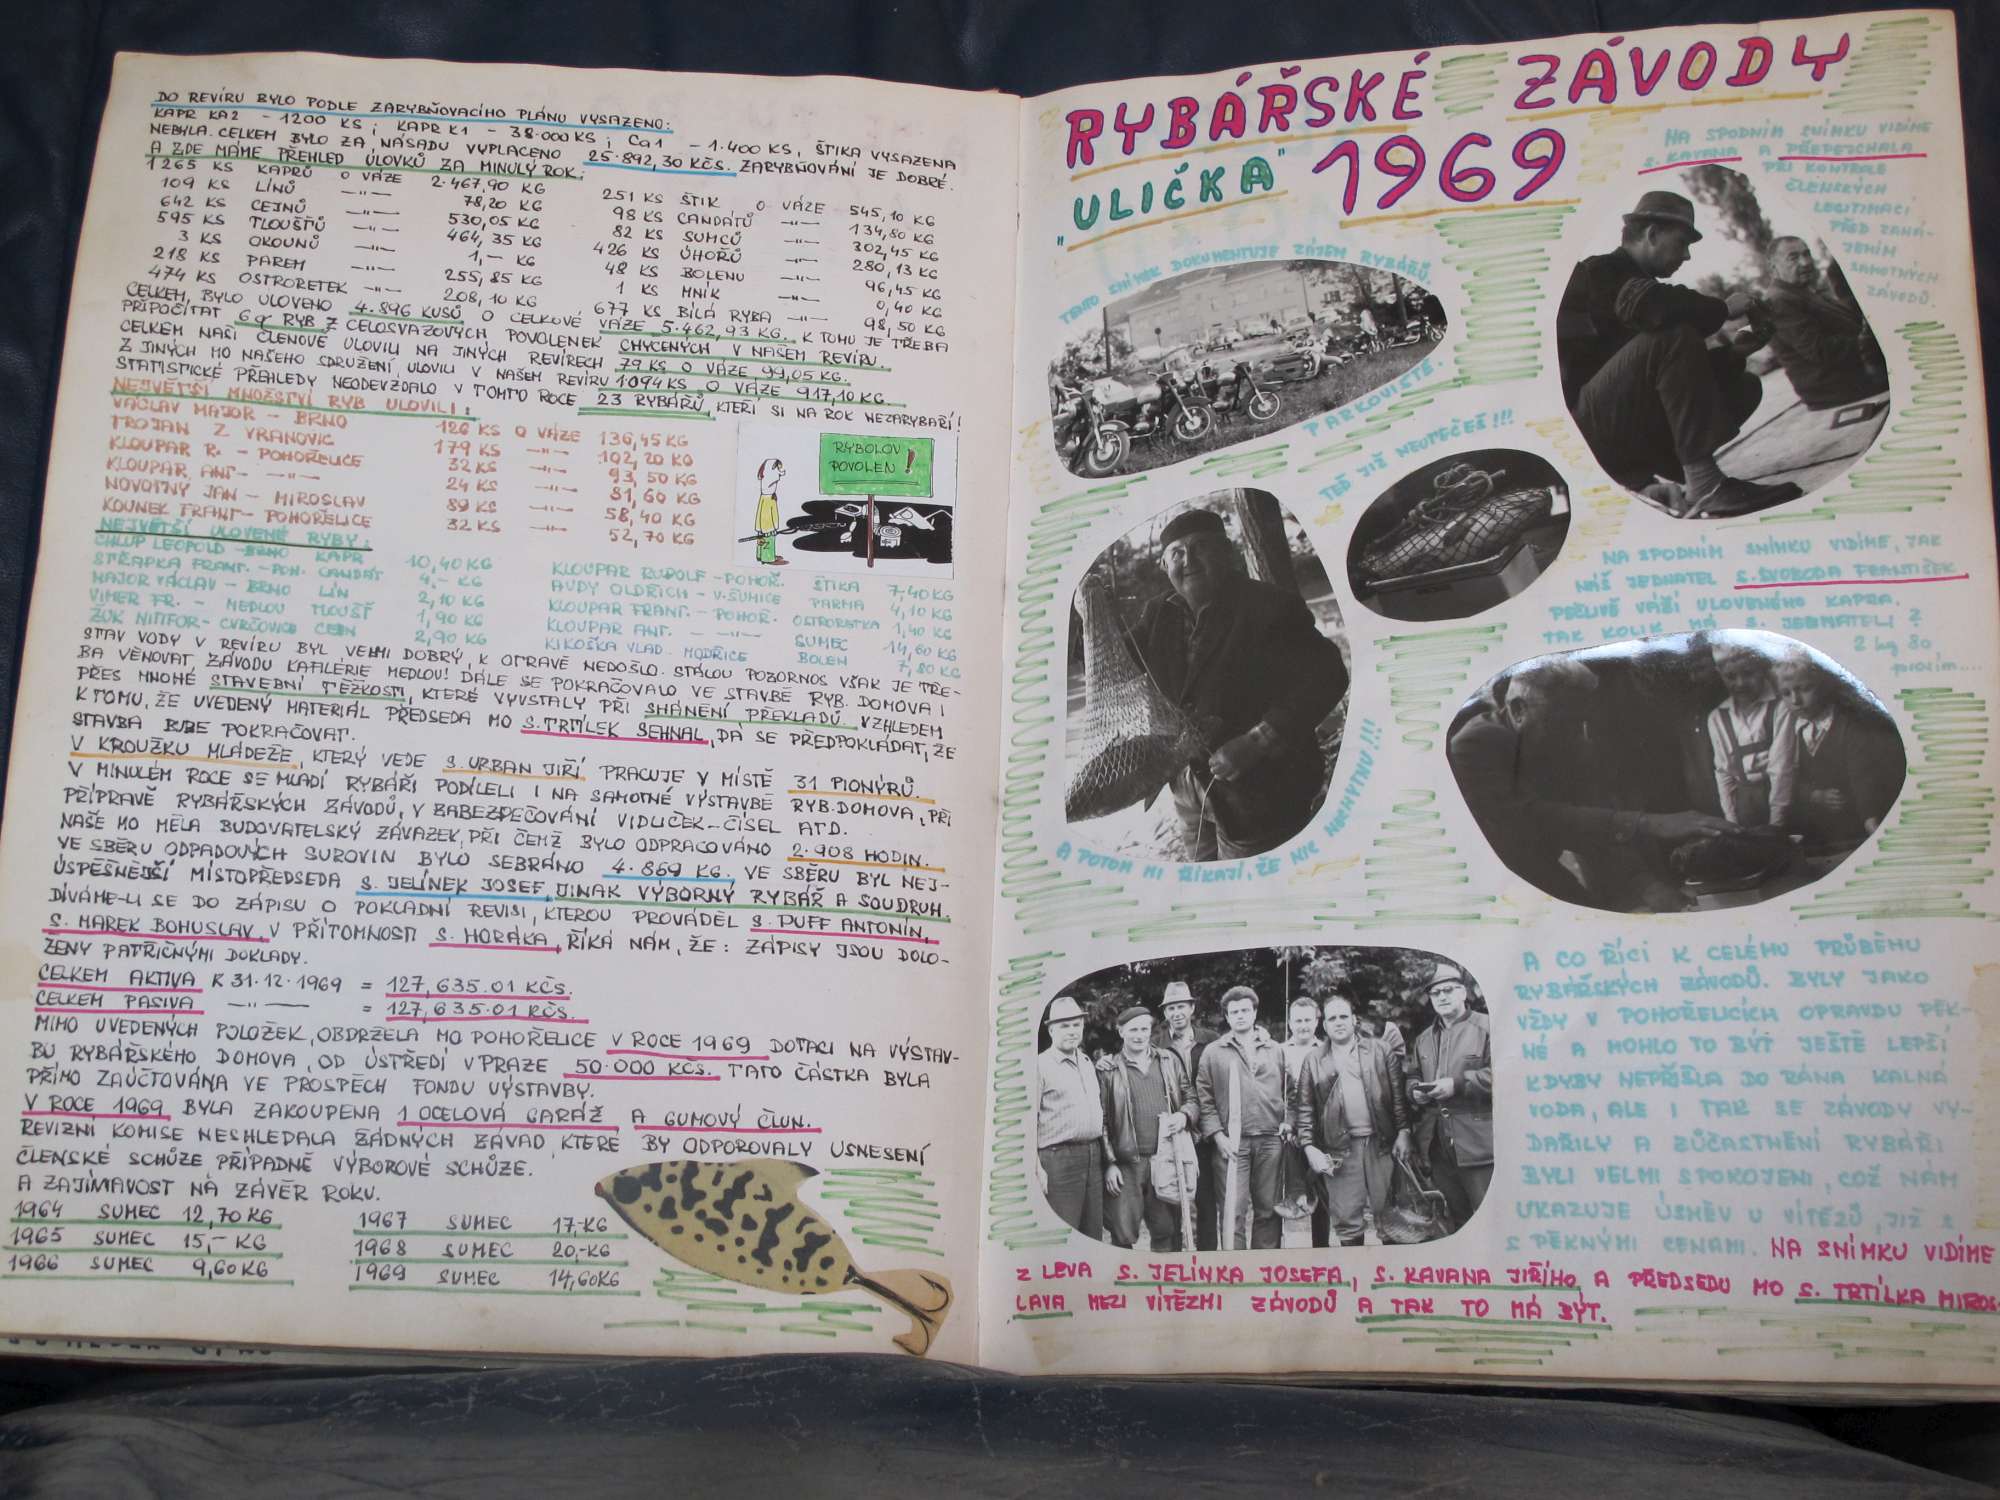 DO REVÍRU BYLO PODLE ZARYBŇOVACÍHO PLÁNU VYSAZENO:
KAPR KA2 - 1200 KS; KAPR K1 - 38.000 KS; Ca1 - 1.400 KS, ŠTIKA VYSAZENA
NEBYLA. CELKEM BYLO ZA NÁSADU VYPLACENO 25.892,30 KČS. ZARYBŇOVÁNÍ JE DOBRÉ.
A ZDE MÁME PŘEHLED ÚLOVKŮ ZA MINULÝ ROK:
1265 KS KAPRŮ O VÁZE 2.467,90 KG
109 KS LÍNŮ —"— 78,20 KG
642 KS CEJNŮ —"— 530,05 KG
595 KS TLOUŠŤŮ —"— 464,35 KG
3 KS OKOUNŮ —"— 1,— KG
218 KS PAREM —"— 255,85 KG
474 KS OSTRORETEK —"— 208,10 KG
251 KS ŠTIK O VÁZE 545,10 KG
98 KS CANDÁTŮ —"— 134,80 KG
82 KS SUMCŮ —"— 302,45 KG
426 KS ÚHOŘŮ —"— 280,13 KG
48 KS BOLENU —"— 96,45 KG
1 KS MNÍK —"— 0,40 KG
677 KS BÍLÁ RYBA —"— 98,50 KG
CELKEM BYLO ULOVENO 4.896 KUSŮ O CELKOVÉ VÁZE 5.462,93 KG. K TOMU JE TŘEBA
PŘIPOČÍTAT 6q RYB Z CELOSVAZOVÝCH POVOLENEK CHYCENÝCH V NAŠEM REVÍRU.
CELKEM NAŠI ČLENOVÉ ULOVILI NA JINÝCH REVÍRECH 79 KS O VÁZE 99,05 KG.
Z JINÝCH MO NAŠEHO SDRUŽENÍ, ULOVILI V NAŠEM REVÍRU 1094 KS O VÁZE 917,10 KG.
STATISTICKÉ PŘEHLEDY NEODEVZDALO V TOMTO ROCE 23 RYBÁŘŮ, KTEŘÍ SI NA ROK NEZARYBAŘÍ!
NEJVĚTŠÍ MNOŽSTVÍ RYB ULOVILI:
VÁCLAV MAJOR - BRNO 126 KS O VÁZE 136,45 KG
TROJAN Z VRANOVIC 179 KS —"— 102,20 KG
KLOUPAR R. - POHOŘELICE 32 KS —"— 93,50 KG
KLOUPAR ANT- —"— 24 KS —"— 81,60 KG
NOVOTNÝ JAN - MIROSLAV 89 KS —"— 58,40 KG
KOUNEK FRANT- POHOŘELICE 32 KS —"— 52,70 KG
RYBOLOV
POVOLEN!
NEJVĚTŠÍ ULOVENÉ RYBY:
CHLUP LEOPOLD - BRNO KAPR 10,40 KG
STŘAPKA FRANT.- POH. CANDÁT 4,- KG
MAJOR VÁCLAV - BRNO LÍN 2,10 KG
VIMER FR. - MEDLOV TLOUŠŤ 1,90 KG
ŽUK NITIFOR- CVRČOVICE CEJN 2,90 KG
KLOUPAR RUDOLF - POHOŘ. ŠTIKA 7,40 KG
AUDY OLDŘICH - V. ŠUMICE PARMA 4,10 KG
KLOUPAR FRANT. - POHOŘ. OSTRORETKA 1,40 KG
KLOUPAR ANT. - —"— SUMEC 14,60 KG
KIKOŠKA VLAD. MODŘICE BOLEN 7,80 KG
STAV VODY V REVÍRU BYL VELMI DOBRÝ, K OTRAVĚ NEDOŠLO. STÁLOU POZORNOS VŠAK JE TŘE-
BA VĚNOVAT, ZÁVODU KAFILÉRIE MEDLOV! DÁLE SE POKRAČOVALO VE STAVBĚ RYB. DOMOVA I
PŘES MNOHÉ STAVEBNÍ TĚŽKOSTI, KTERÉ VYVSTALY PŘI SHÁNĚNÍ PŘEKLADŮ. VZHLEDEM
K TOMU, ŽE UVEDENÝ MATERIÁL PŘEDSEDA MO S. TRTÍLEK SEHNAL, DÁ SE PŘEDPOKLÁDAT, ŽE
STAVBA BUDE POKRAČOVAT.
V KROUŽKU MLÁDEŽE, KTERÝ VEDE S. URBAN JIŘÍ PRACUJE V MÍSTĚ 31 PIONÝRŮ.
V MINULÉM ROCE SE MLADÍ RYBÁŘI PODÍLELI I NA SAMOTNÉ VÝSTAVBĚ RYB. DOMOVA, PŘI
PŘÍPRAVĚ RYBÁŘSKÝCH ZÁVODŮ, V ZABEZPEČOVÁNÍ VIDLIČEK-ČÍSEL ATD.
NAŠE MO MĚLA BUDOVATELSKÝ ZÁVAZEK, PŘI ČEMŽ BYLO ODPRACOVÁNO 2.908 HODIN.
VE SBĚRU ODPADOVÝCH SUROVIN BYLO SEBRÁNO 4.869 KG. VE SBĚRU BYL NEJ-
ÚSPĚŠNĚJŠÍ MÍSTOPŘEDSEDA S. JELÍNEK JOSEF, JINAK VÝBORNÝ RYBÁŘ A SOUDRUH.
DÍVÁME-LI SE DO ZÁPISU O POKLADNÍ REVISI, KTEROU PROVÁDĚL S. PUFF ANTONÍN,
S. MAREK BOHUSLAV, V PŘÍTOMNOSTI S. HORÁKA, ŘÍKÁ NÁM, ŽE: ZÁPISY JSOU DOLO-
ŽENY PATŘIČNÝMI DOKLADY.
CELKEM AKTIVA K 31.12.1969 = 127,635.01 KČS.
CELKEM PASIVA —"— = 127,635.01 KČS.
MIMO UVEDENÝCH POLOŽEK, OBDRŽELA MO POHOŘELICE V ROCE 1969 DOTACI NA VÝSTAV-
BU RYBÁŘSKÉHO DOMOVA, OD ÚSTŘEDÍ V PRAZE 50.000 KČS. TATO ČÁSTKA BYLA
PŘÍMO ZAÚČTOVÁNA VE PROSPĚCH FONDU VÝSTAVBY.
V ROCE 1969 BYLA ZAKOUPENA 1 OCELOVÁ GARÁŽ A GUMOVÝ ČLUN.
REVIZNÍ KOMISE NESHLEDALA ŽÁDNÝCH ZÁVAD, KTERÉ BY ODPOROVALY USNESENÍ
ČLENSKÉ SCHŮZE PŘÍPADNĚ VÝBOROVÉ SCHŮZE.
A ZAJÍMAVOST NA ZÁVĚR ROKU.
1964 SUMEC 12,70 KG
1965 SUMEC 15,- KG
1966 SUMEC 9,60 KG
1967 SUMEC 17,- KG
1968 SUMEC 20,- KG
1969 SUMEC 14,60 KG
RYBÁŘSKÉ ZÁVODY
"ULIČKA" 1969
NA SPODNÍM SNÍMKU VIDÍME
S. KAVANA A PŘEPEJCHALA
PŘI KONTROLE
ČLENSKÝCH
LEGITIMACÍ
PŘED ZAHÁ-
JENÍM
SAMOTNÝCH
ZÁVODŮ.
TENTO SNÍMEK DOKUMENTUJE ZÁJEM RYBÁŘŮ.
PARKOVIŠTĚ.
TEĎ JIŽ NEUTEČEŠ!!!
NA SPODNÍM SNÍMKU VIDÍME, JAK
NÁŠ JEDNATEL S. SVOBODA FRANTIŠEK
PEČLIVĚ VÁŽÍ ULOVENÉHO KAPRA.
TAK KOLIK MÁ S. JEDNATELI?
2 kg 80,
prosím....
A POTOM MI ŘÍKAJÍ, ŽE NIC NECHYTNU!!!
A CO ŘÍCI K CELÉMU PRŮBĚHU
RYBÁŘSKÝCH ZÁVODŮ. BYLY JAKO
VŽDY V POHOŘELICÍCH OPRAVDU PĚK-
NÉ A MOHLO TO BÝT JEŠTĚ LEPŠÍ
KDYBY NEPŘIŠLA DO RÁNA KALNÁ
VODA, ALE I TAK SE ZÁVODY VY-
DAŘILY A ZÚČASTNĚNÍ RYBÁŘI
BYLI VELMI SPOKOJENI, COŽ NÁM
UKAZUJE ÚSMĚV U VÍTĚZŮ, JIŽ S
S PĚKNÝMI CENAMI. NA SNÍMKU VIDÍME
Z LEVA S. JELÍNKA JOSEFA, S. KAVANA JIŘÍHO, A PŘEDSEDU MO S. TRTÍLKA MIROS-
LAVA MEZI VÍTĚZMI ZÁVODŮ A TAK TO MÁ BÝT.